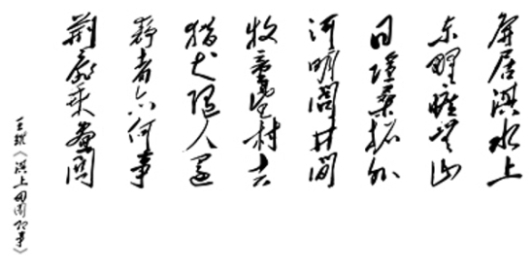 屏居淇水上
东野旷无山
日隐桑柘外
河明闾井间
牧童望村去
猎犬随人还
静者亦何事
荆扉乘昼关
王维《淇上田园即事》